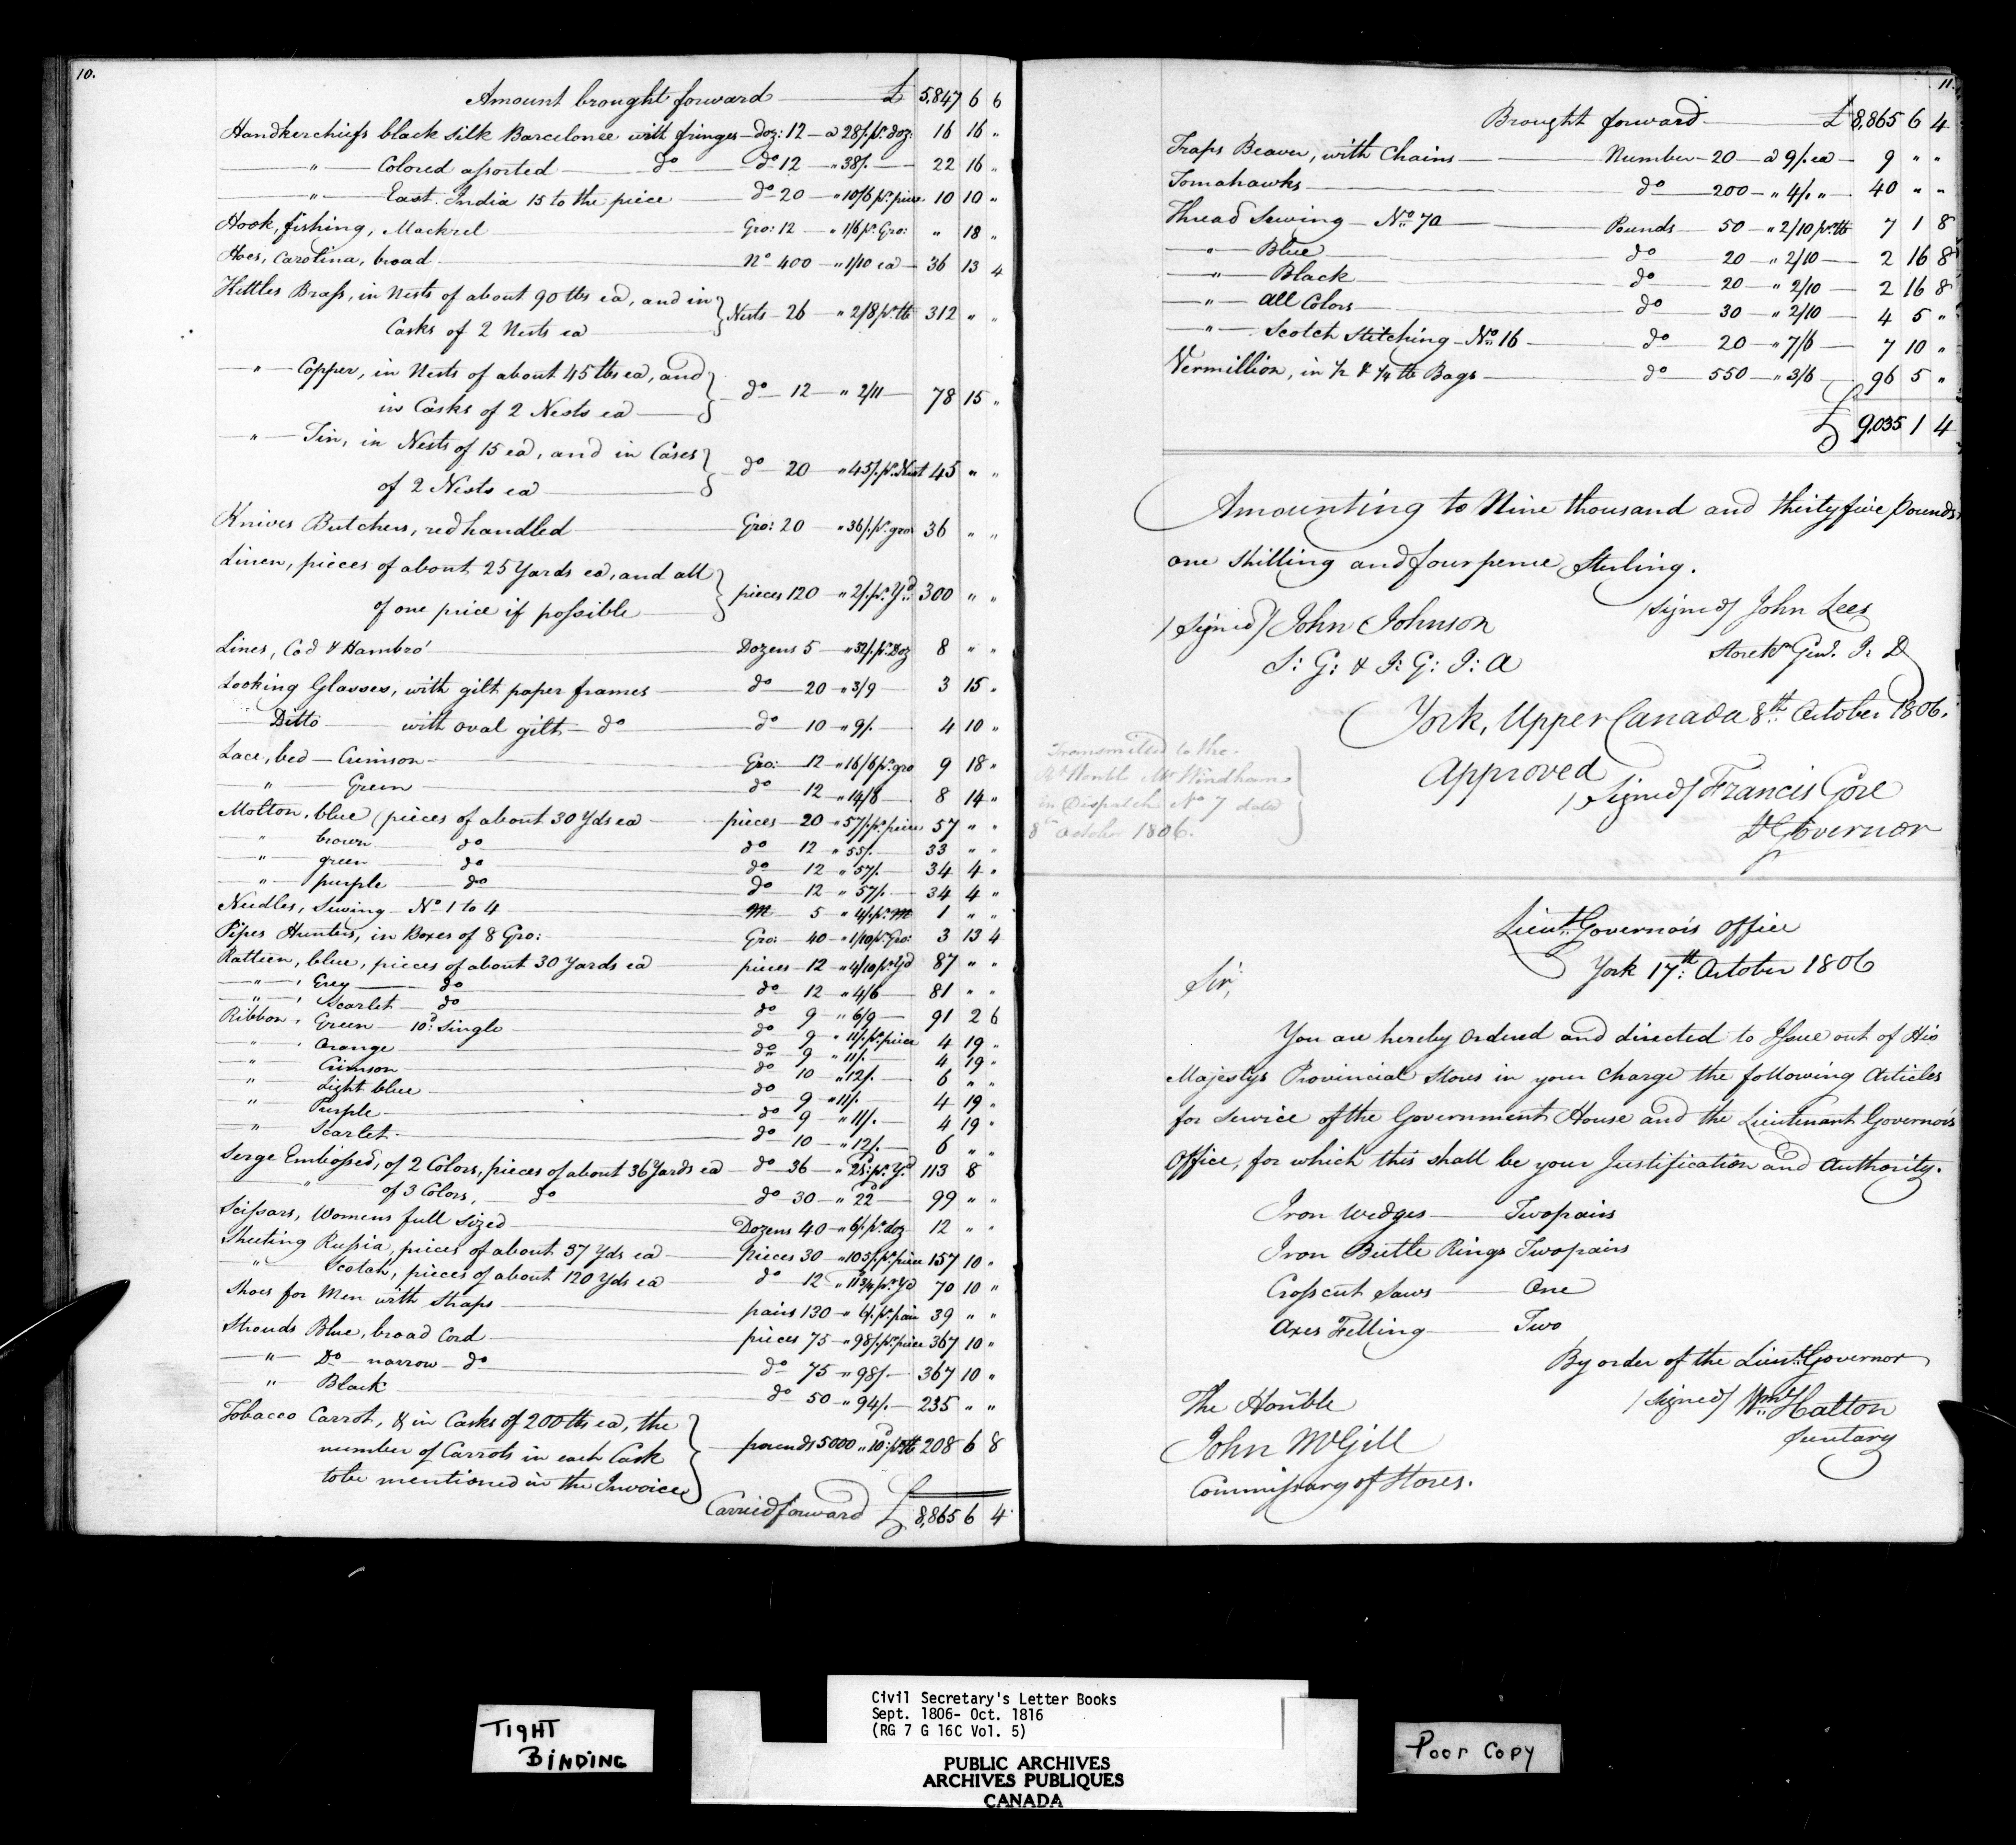 10.
Amount brought forward £ 5,847 6 6
Handkerchiefs black silk Barcelonee with fringes - doz: 12 - a 28/. pr. doz: 16 16 "
" Colored assorted do do 12 " 38/. 22 16 "
" East India 15 to the piece do 20 " 10/6 pr. piece 10 10 "
Hook, fishing, Mackrel Gro: 12 " 1/6 pr. Gro: " 18 "
Hoes, Carolina, broad No 400 " 1/10 ea 36 13 4
Kettles Brass, in Nests of about 90 lbs ea, and in
Casks of 2 Nests ea } Nests 26 " 2/8 pr. lb 312 " "
" Copper, in Nests of about 45 lbs ea, and
in Casks of 2 Nests ea } do 12 " 2/11 78 15 "
" Tin, in Nests of 15 ea, and in Cases
of 2 Nests ea } do 20 " 45/. pr. Nest 45 " "
Knives Butchers, red handled Gro: 20 " 36/. pr. gro 36 " "
Linen, pieces of about 25 Yards ea, and all
of one price if possible } pieces 120 " 2/. pr. Yd. 300 " "
Lines, Cod & Hambro' Dozens 5 " 32/. pr. Doz 8 " "
Looking Glasses, with gilt paper frames do 20 " 3/9 3 15 "
Ditto with oval gilt do do 10 " 9/. 4 10 "
Lace, bed - Crimson Gro: 12 " 16/6 pr. gro 9 18 "
" Green do 12 " 14/8 8 14 "
Molton, blue (pieces of about 30 Yds ea pieces 20 " 57/. pr. piece 57 " "
" brown do do 12 " 55/. 33 " "
" green do do 12 " 57/. 34 4 "
" purple do do 12 " 57/. 34 4 "
Needles, Sewing No 1 to 4 M 5 " 4/. pr. M 1 " "
Pipes Hunters, in Boxes of 8 Gro: Gro: 40 " 1/10 pr. Gro: 3 13 4
Ratteen, blue, pieces of about 30 Yards ea pieces 12 " 4/10 pr. Yd 87 " "
" Grey do do 12 " 4/6 81 " "
" Scarlet do do 9 " 6/9 91 2 6
Ribbon, Green 10d. Single do 9 " 11/. pr. piece 4 19 "
" Orange do 9 " 11/. 4 19 "
" Crimson do 10 " 12/. 6 " "
" Light blue do 9 " 11/. 4 19 "
" Purple do 9 " 11/. 4 19 "
" Scarlet do 10 " 12/. 6 " "
Serge Embossed, of 2 Colors, pieces of about 36 Yards ea do 36 " 21d. pr. Yd 113 8
" of 3 Colors, do do 30 " 22d 99 " "
Scissars, Womens full sized Dozens 40 " 6/. pr. doz 12 " "
Sheeting Russia, pieces of about 37 Yds ea Pieces 30 " 105/. pr. piece 157 10 "
" Scotch, pieces of about 120 Yds ea do 12 " 11 3/4 pr. Yd 70 10 "
Shoes for Men with Straps pairs 130 " 6/. pr. pair 39 " "
Strouds Blue, broad Cord pieces 75 " 98/. pr. piece 367 10 "
" Do narrow do do 75 " 98/. 367 10 "
" Black do 50 " 94/. 235 " "
Tobacco Carrot, & in Casks of 200 lbs ea, the
number of Carrots in each Cask
to be mentioned in the Invoice } pounds 5000 " 10d. pr. lb 208 6 8
Carried forward £ 8,865 6 4
11.
Brought forward £ 8,865 6 4
Traps Beaver, with Chains Number 20 a 9/. ea 9 " "
Tomahawks do 200 " 4/. " 40 " "
Thread Sewing No. 70 Pounds 50 " 2/10 pr. lb 7 1 8
" Blue do 20 " 2/10 2 16 8
" Black do 20 " 2/10 2 16 8
" all Colors do 30 " 2/10 4 5 "
" Scotch Stitching No. 16 do 20 " 7/6 7 10 "
Vermillion, in 1/2 & 1/4 lb Bags do 550 " 3/6 96 5 "
£ 9,035 1 4
Amounting to Nine thousand and thirty five Pounds
one shilling and four pence Sterling.
/Signed/ John Johnson
S: G: & I: G: I: A
/signed/ John Lees
Storekr. Genl. I. D
York, Upper Canada 8th. October 1806.
Approved
/Signed/ Francis Gore
Lt Governor
Transmitted to the
Rt. Honble Mr Windham
in Dispatch No 7 dated
8th October 1806.
Lieut. Governor's Office
York 17th: October 1806
Sir,
You are hereby Ordered and directed to Issue out of His
Majesty's Provincial Stores in your Charge the following Articles
for service of the Government House and the Lieutenant Governor's
Office, for which this shall be your Justification and Authority.
Iron Wedges Two pairs
Iron Beetle Rings Two pairs
Crosscut Saws One
Axes Felling Two
By order of the Lieut. Governor
/Signed/ Wm. Halton
Secretary
The Honble
John McGill
Commissary of Stores.
TIGHT
BINDING
Civil Secretary's Letter Books
Sept. 1806- Oct. 1816
(RG 7 G 16C Vol. 5)
PUBLIC ARCHIVES
ARCHIVES PUBLIQUES
CANADA
Poor Copy